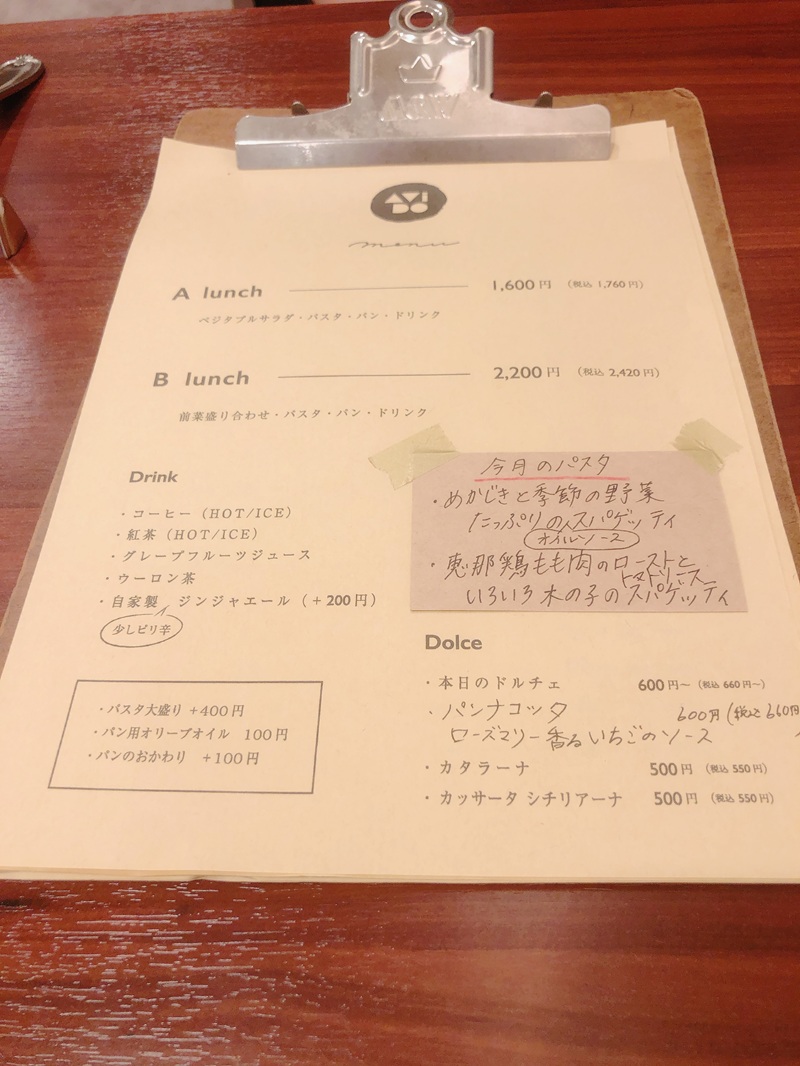 AVIDO
menu
A lunch 1,600円 (税込 1,760円)
ベジタブルサラダ・パスタ・パン・ドリンク
B lunch 2,200円 (税込 2,420円)
前菜盛り合わせ・パスタ・パン・ドリンク
Drink
・コーヒー (HOT/ICE)
・紅茶 (HOT/ICE)
・グレープフルーツジュース
・ウーロン茶
・自家製 ジンジャエール (+200円)
少しピリ辛
・パスタ大盛り +400円
・パン用オリーブオイル 100円
・パンのおかわり +100円
今月のパスタ
・めかじきと季節の野菜
たっぷりのスパゲッティ
オイルソース
・恵那鶏もも肉のローストと
いろいろ木の子のトマトソーススパゲッティ
Dolce
・本日のドルチェ 600円〜 (税込 660円〜)
・パンナコッタ 600円 (税込 660円
ローズマリー香るいちごのソース
・カタラーナ 500円 (税込 550円)
・カッサータ シチリアーナ 500円 (税込 550円)